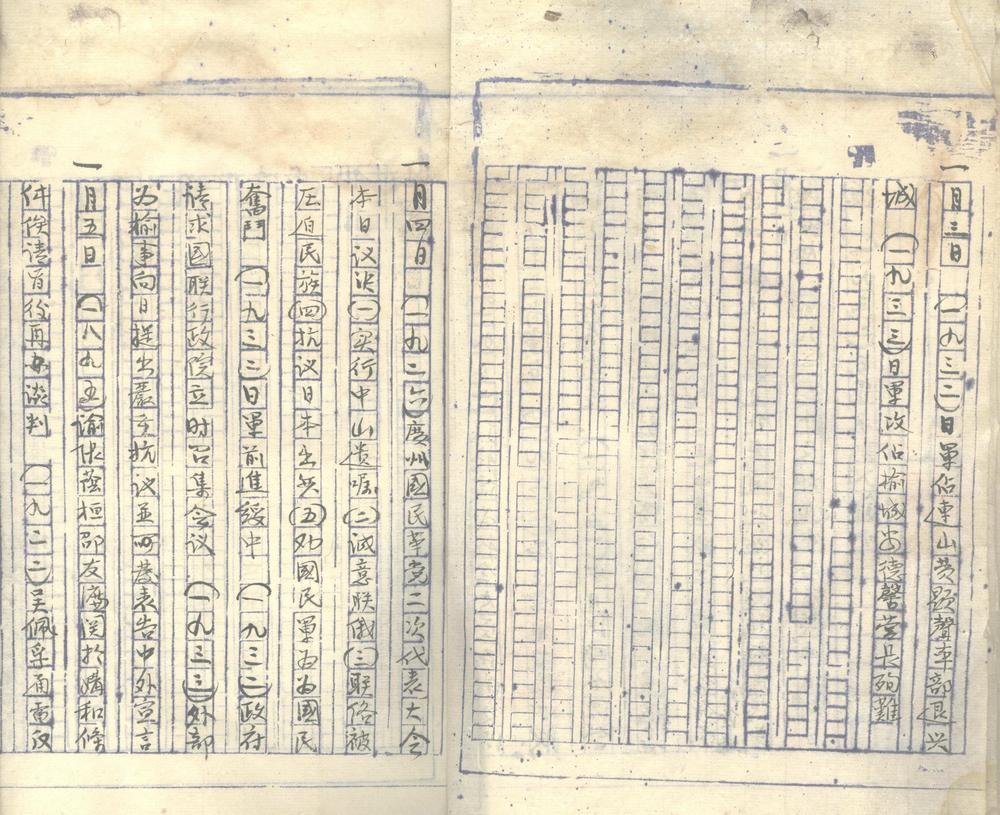 一月三日 (一九三二)日軍佔連山黄顯聲率部退兴
城 (一九三三)日軍攻佔揄城安德馨营長殉難
一月四日 (一九二六)廣州國民革党二次代表大会
本日议决(一)实行中山遗嘱(二)诚意联俄(三)联络被
压迫民族(四)抗议日本出兵(五)國民軍为國民
奮鬥 (一九三三)日軍前進綏中 (一九三二)政府
请求國联行政院立时召集会议 (一九三三)外部
为揄事向日提出嚴重抗议並發表告中外宣言
一月五日 (一八九五)谕张蔭桓邵友濂関於媾和條
件俟请旨後再办谈判 (一九二二)吴佩孚通電反